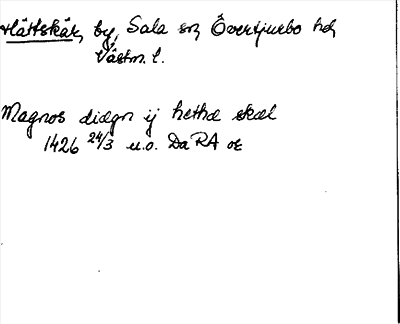 Hättskäl, by, Sala sn, Övertjurbo hd,
Västm. l.
Magnos diægn ij hethæ skæl
1426 24/3 u.o. Da RA or